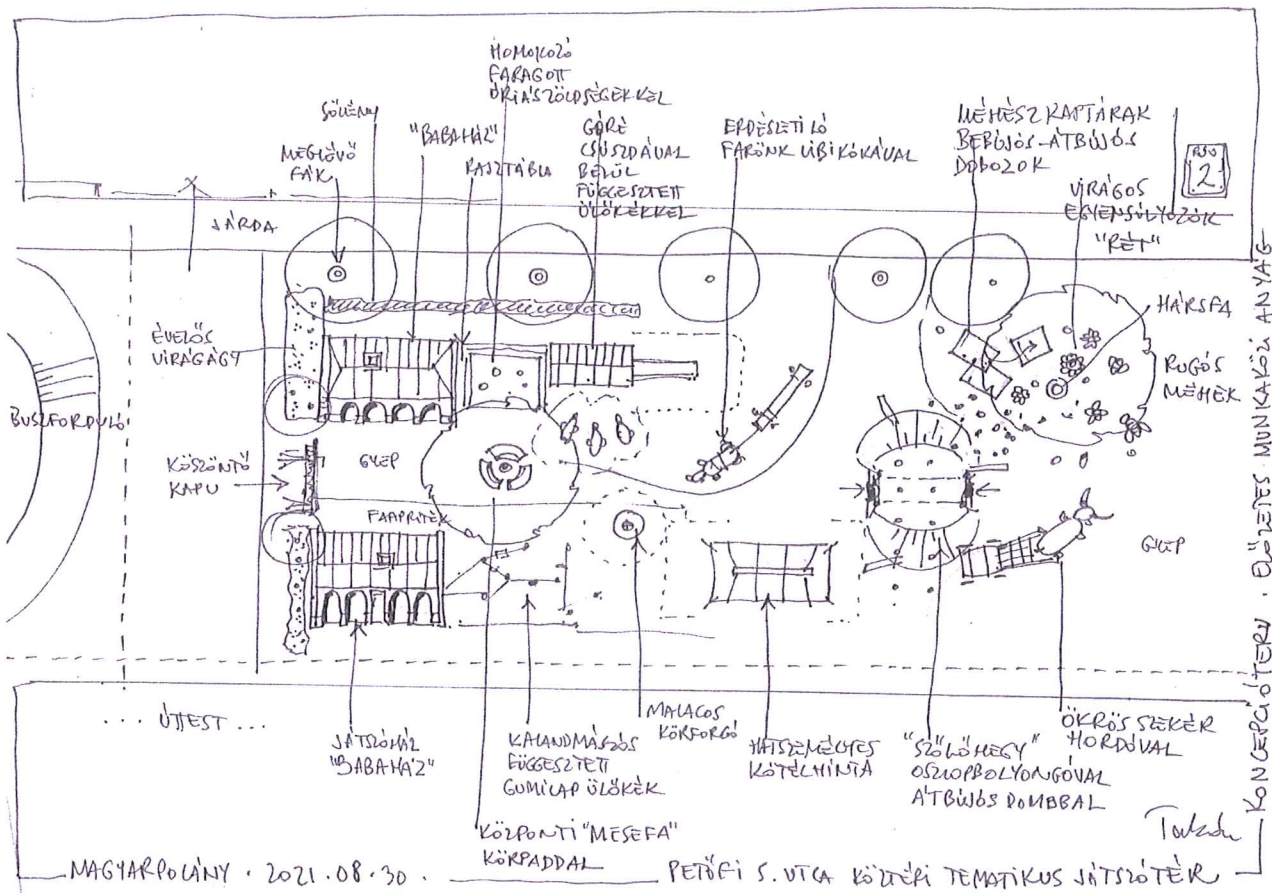 HOMOKOZÓ
FARAGOTT
ÓRIÁSZÖLDSÉGEKKEL
SÖVÉNY
"BABAHÁZ"
MEGLÉVŐ
FÁK
RAJZTÁBLA
GÓRÉ
CSÚSZDÁVAL
BELÜL
FÜGGESZTETT
ÜLŐKÉKKEL
ERDÉSZETI LÓ
FARÖNK LIBIKÓKÁVAL
MÉHÉSZ KAPTÁRAK
BEBÚJÓS-ÁTBÚJÓS
DOBOZOK
VIRÁGOS
EGYENSÚLYOZÓK
"RÉT"
2
JÁRDA
HÁRSFA
RUGÓS
MÉHEK
ÉVELŐS
VIRÁGÁGY
BUSZFORDULÓ
KÖSZÖNTŐ
KAPU
GYEP
FAAPRÍTÉK
GYEP
... ÚTTEST ...
JÁTSZÓHÁZ
"BABAHÁZ"
KALANDMÁSZÓS
FÜGGESZTETT
GUMILAP ÜLŐKÉK
MALACOS
KÖRFORGÓ
HATSZEMÉLYES
KÖTÉLHINTA
"SZŐLŐHEGY"
OSZLOPBOLYONGÓVAL
ÁTBÚJÓS DOMBBAL
ÖKRÖS SZEKÉR
HORDÓVAL
KÖZPONTI "MESEFA"
KÖRPADDAL
MAGYARPOLÁNY · 2021.08.30.
PETŐFI S. UTCA KÖZTÉRI TEMATIKUS JÁTSZÓTÉR
KONCEPCIÓTERV · ELŐZETES MUNKAKÖZI ANYAG